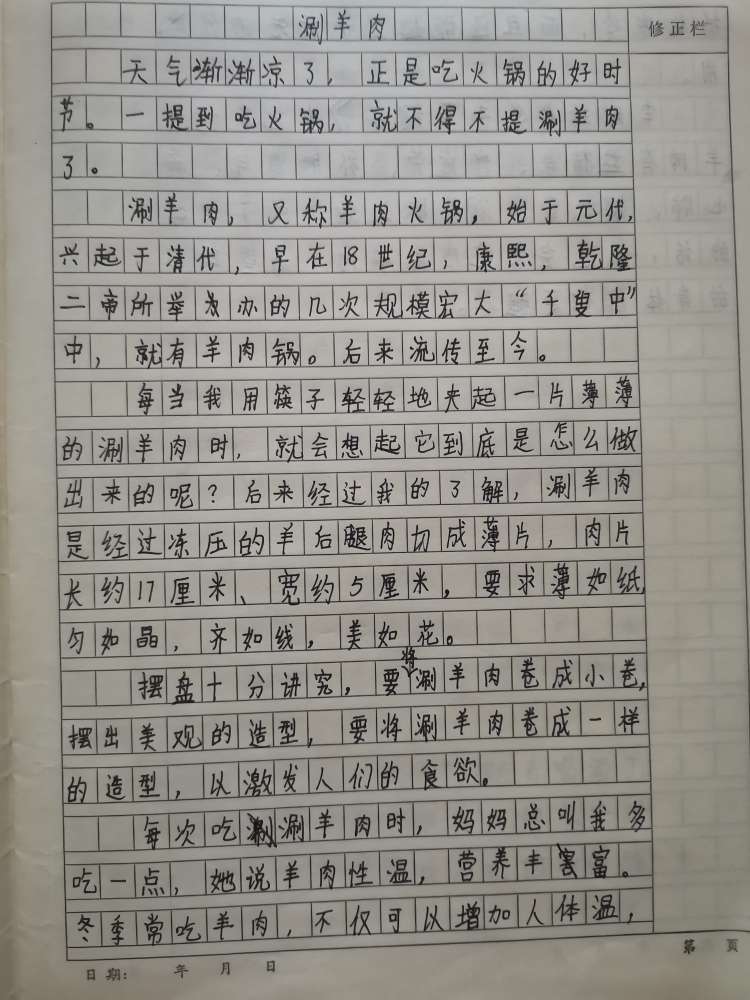 涮羊肉
修正栏
天气渐渐凉了，正是吃火锅的好时
节。一提到吃火锅，就不得不提涮羊肉
了。
涮羊肉，又称羊肉火锅，始于元代，
兴起于清代，早在18世纪，康熙，乾隆
二帝所举办的几次规模宏大“千叟中”
中，就有羊肉锅。后来流传至今。
每当我用筷子轻轻地夹起一片薄薄
的涮羊肉时，就会想起它到底是怎么做
出来的呢？后来经过我的了解，涮羊肉
是经过冻压的羊后腿肉切成薄片，肉片
长约17厘米、宽约5厘米，要求薄如纸，
匀如晶，齐如线，美如花。
摆盘十分讲究，要将涮羊肉卷成小卷，
摆出美观的造型，要将涮羊肉卷成一样
的造型，以激发人们的食欲。
每次吃涮羊肉时，妈妈总叫我多
吃一点，她说羊肉性温，营养丰富。
冬季常吃羊肉，不仅可以增加人体温，
第 页
日期： 年 月 日